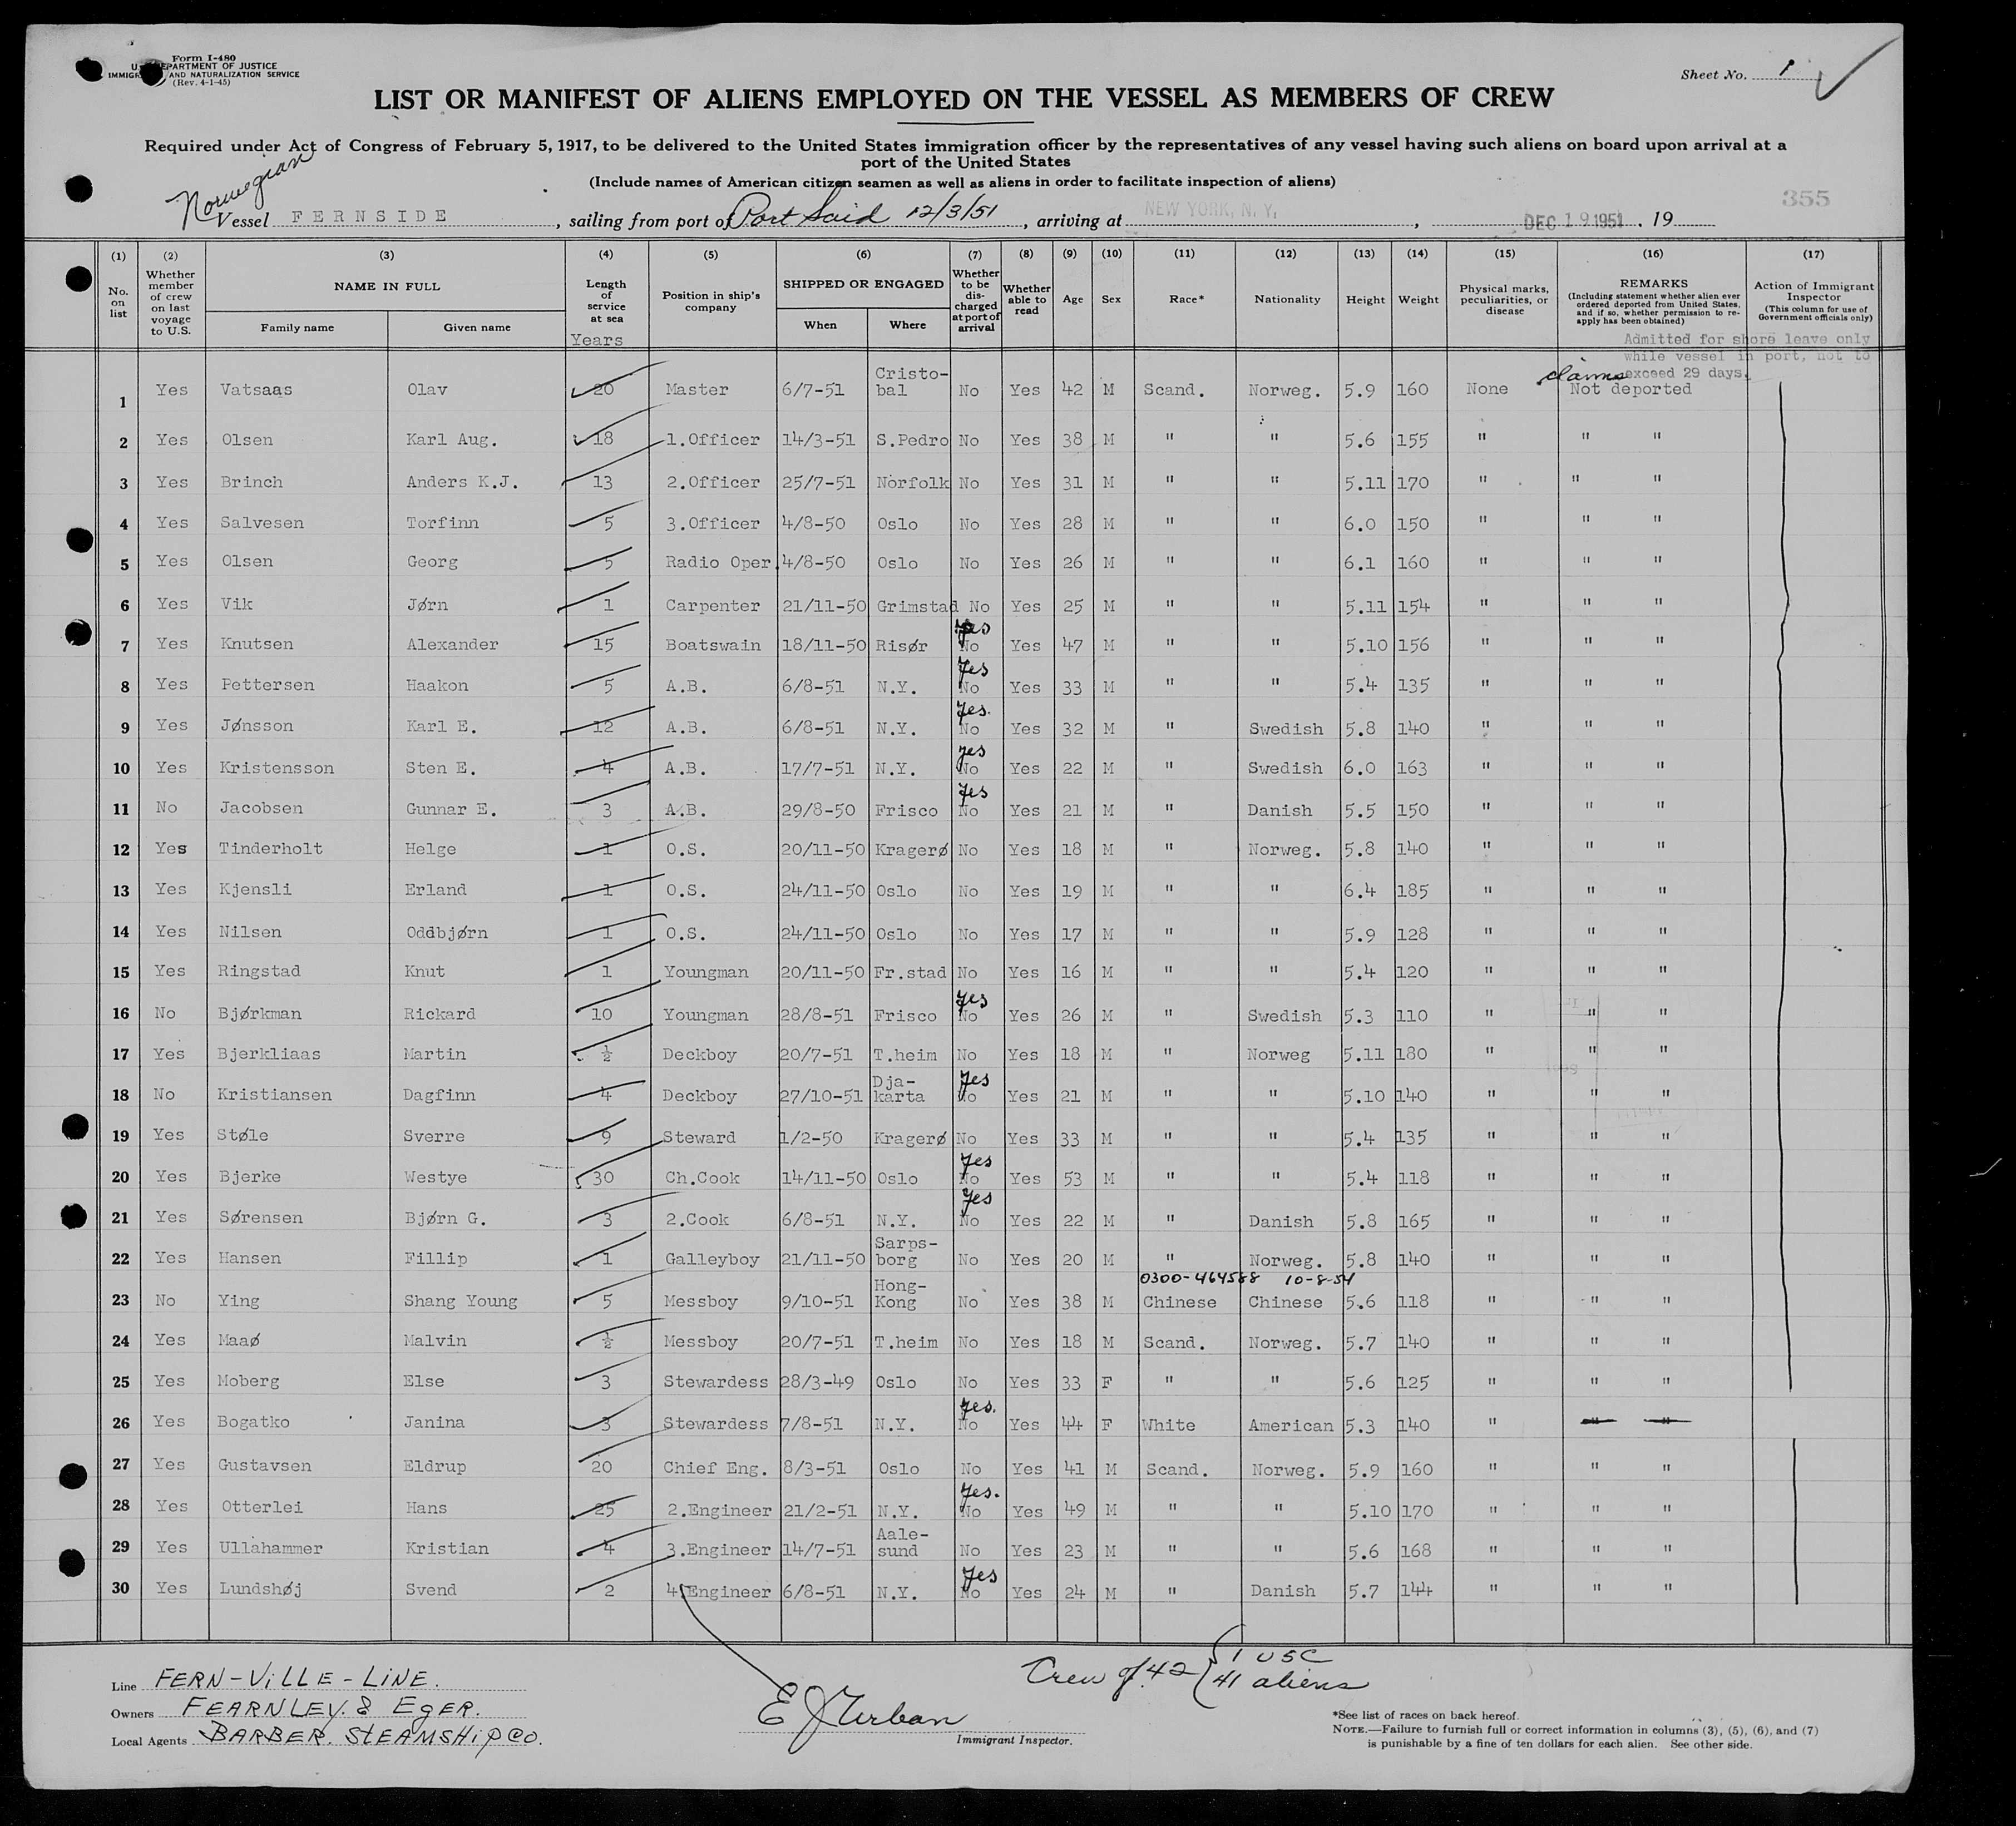 Form I-480
U. S. DEPARTMENT OF JUSTICE
IMMIGRATION AND NATURALIZATION SERVICE
(Rev. 4-1-45)
Sheet No. 1
LIST OR MANIFEST OF ALIENS EMPLOYED ON THE VESSEL AS MEMBERS OF CREW
Required under Act of Congress of February 5, 1917, to be delivered to the United States immigration officer by the representatives of any vessel having such aliens on board upon arrival at a
port of the United States
(Include names of American citizen seamen as well as aliens in order to facilitate inspection of aliens)
355
Norwegian
Vessel FERNSIDE, sailing from port of Port Said 12/3/51, arriving at NEW YORK, N. Y., DEC 19 1951, 19
(1) (2) (3) (4) (5) (6) (7) (8) (9) (10) (11) (12) (13) (14) (15) (16) (17)
No. on list | Whether member of crew on last voyage to U.S. | NAME IN FULL Family name Given name | Length of service at sea Years | Position in ship's company | SHIPPED OR ENGAGED When Where | Whether to be discharged at port of arrival | Whether able to read | Age | Sex | Race* | Nationality | Height | Weight | Physical marks, peculiarities, or disease | REMARKS (Including statement whether alien ever ordered deported from United States, and if so, whether permission to re-apply has been obtained) | Action of Immigrant Inspector (This column for use of Government officials only)
Admitted for shore leave only
while vessel in port, not to
exceed 29 days.
1 Yes Vatsaas Olav 20 Master 6/7-51 Cristo-bal No Yes 42 M Scand. Norweg. 5.9 160 None claims Not deported
2 Yes Olsen Karl Aug. 18 1.Officer 14/3-51 S.Pedro No Yes 38 M " " 5.6 155 " " "
3 Yes Brinch Anders K.J. 13 2.Officer 25/7-51 Norfolk No Yes 31 M " " 5.11 170 " " "
4 Yes Salvesen Torfinn 5 3.Officer 4/8-50 Oslo No Yes 28 M " " 6.0 150 " " "
5 Yes Olsen Georg 5 Radio Oper. 4/8-50 Oslo No Yes 26 M " " 6.1 160 " " "
6 Yes Vik Jørn 1 Carpenter 21/11-50 Grimstad No Yes 25 M " " 5.11 154 " " "
7 Yes Knutsen Alexander 15 Boatswain 18/11-50 Risør Yes No Yes 47 M " " 5.10 156 " " "
8 Yes Pettersen Haakon 5 A.B. 6/8-51 N.Y. Yes No Yes 33 M " " 5.4 135 " " "
9 Yes Jønsson Karl E. 12 A.B. 6/8-51 N.Y. Yes. No Yes 32 M " Swedish 5.8 140 " " "
10 Yes Kristensson Sten E. 4 A.B. 17/7-51 N.Y. Yes No Yes 22 M " Swedish 6.0 163 " " "
11 No Jacobsen Gunnar E. 3 A.B. 29/8-50 Frisco Yes No Yes 21 M " Danish 5.5 150 " " "
12 Yes Tinderholt Helge 1 O.S. 20/11-50 Kragerø No Yes 18 M " Norweg. 5.8 140 " " "
13 Yes Kjensli Erland 1 O.S. 24/11-50 Oslo No Yes 19 M " " 6.4 185 " " "
14 Yes Nilsen Oddbjørn 1 O.S. 24/11-50 Oslo No Yes 17 M " " 5.9 128 " " "
15 Yes Ringstad Knut 1 Youngman 20/11-50 Fr.stad No Yes 16 M " " 5.4 120 " " "
16 No Bjørkman Rickard 10 Youngman 28/8-51 Frisco Yes No Yes 26 M " Swedish 5.3 110 " " "
17 Yes Bjerkliaas Martin ½ Deckboy 20/7-51 T.heim No Yes 18 M " Norweg 5.11 180 " " "
18 No Kristiansen Dagfinn 4 Deckboy 27/10-51 Dja-karta Yes No Yes 21 M " " 5.10 140 " " "
19 Yes Støle Sverre 9 Steward 1/2-50 Kragerø No Yes 33 M " " 5.4 135 " " "
20 Yes Bjerke Westye 30 Ch.Cook 14/11-50 Oslo Yes No Yes 53 M " " 5.4 118 " " "
21 Yes Sørensen Bjørn G. 3 2.Cook 6/8-51 N.Y. Yes No Yes 22 M " Danish 5.8 165 " " "
22 Yes Hansen Fillip 1 Galleyboy 21/11-50 Sarps-borg No Yes 20 M " Norweg. 5.8 140 " " "
0300-464588 10-8-54
23 No Ying Shang Young 5 Messboy 9/10-51 Hong-Kong No Yes 38 M Chinese Chinese 5.6 118 " " "
24 Yes Maaø Malvin ½ Messboy 20/7-51 T.heim No Yes 18 M Scand. Norweg. 5.7 140 " " "
25 Yes Moberg Else 3 Stewardess 28/3-49 Oslo No Yes 33 F " " 5.6 125 " " "
26 Yes Bogatko Janina 3 Stewardess 7/8-51 N.Y. Yes. No Yes 44 F White American 5.3 140 " " "
27 Yes Gustavsen Eldrup 20 Chief Eng. 8/3-51 Oslo No Yes 41 M Scand. Norweg. 5.9 160 " " "
28 Yes Otterlei Hans 25 2.Engineer 21/2-51 N.Y. Yes. No Yes 49 M " " 5.10 170 " " "
29 Yes Ullahammer Kristian 4 3.Engineer 14/7-51 Aale-sund No Yes 23 M " " 5.6 168 " " "
30 Yes Lundshøj Svend 2 4.Engineer 6/8-51 N.Y. Yes No Yes 24 M " Danish 5.7 144 " " "
Line FERN-VILLE-LINE.
Owners FEARNLEY & EGER.
Local Agents BARBER. STEAMSHIP CO.
E J Urban
Immigrant Inspector.
Crew of 42 { 1 USC
41 aliens
*See list of races on back hereof.
NOTE.—Failure to furnish full or correct information in columns (3), (5), (6), and (7)
is punishable by a fine of ten dollars for each alien. See other side.